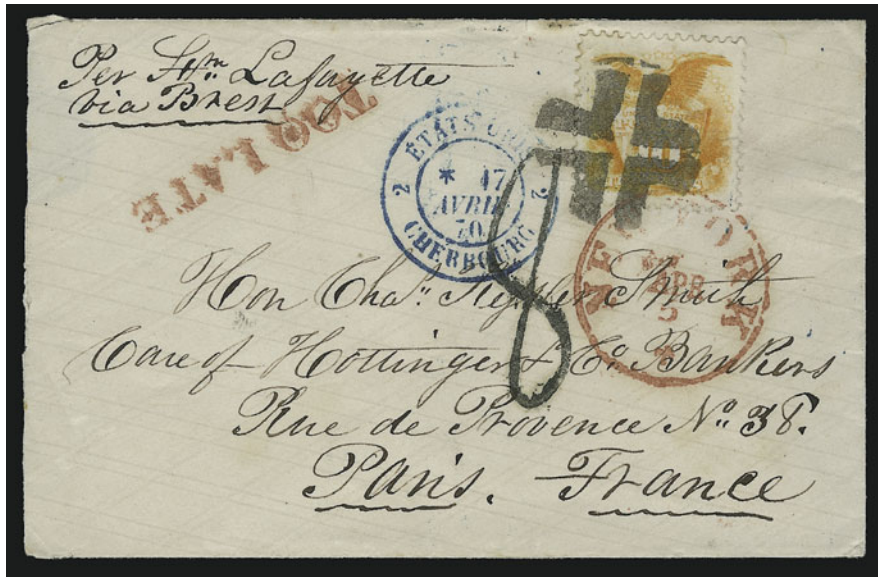 Per Stm Lafayette
via Brest
TOO LATE
2 ÉTATS UNIS 2
* 17
AVRIL
70
CHERBOURG
NEW YORK
APR
5
8
10
Hon Chas. Smith
Care of Hottinger & Co. Bankers
Rue de Provence No. 38.
Paris. France